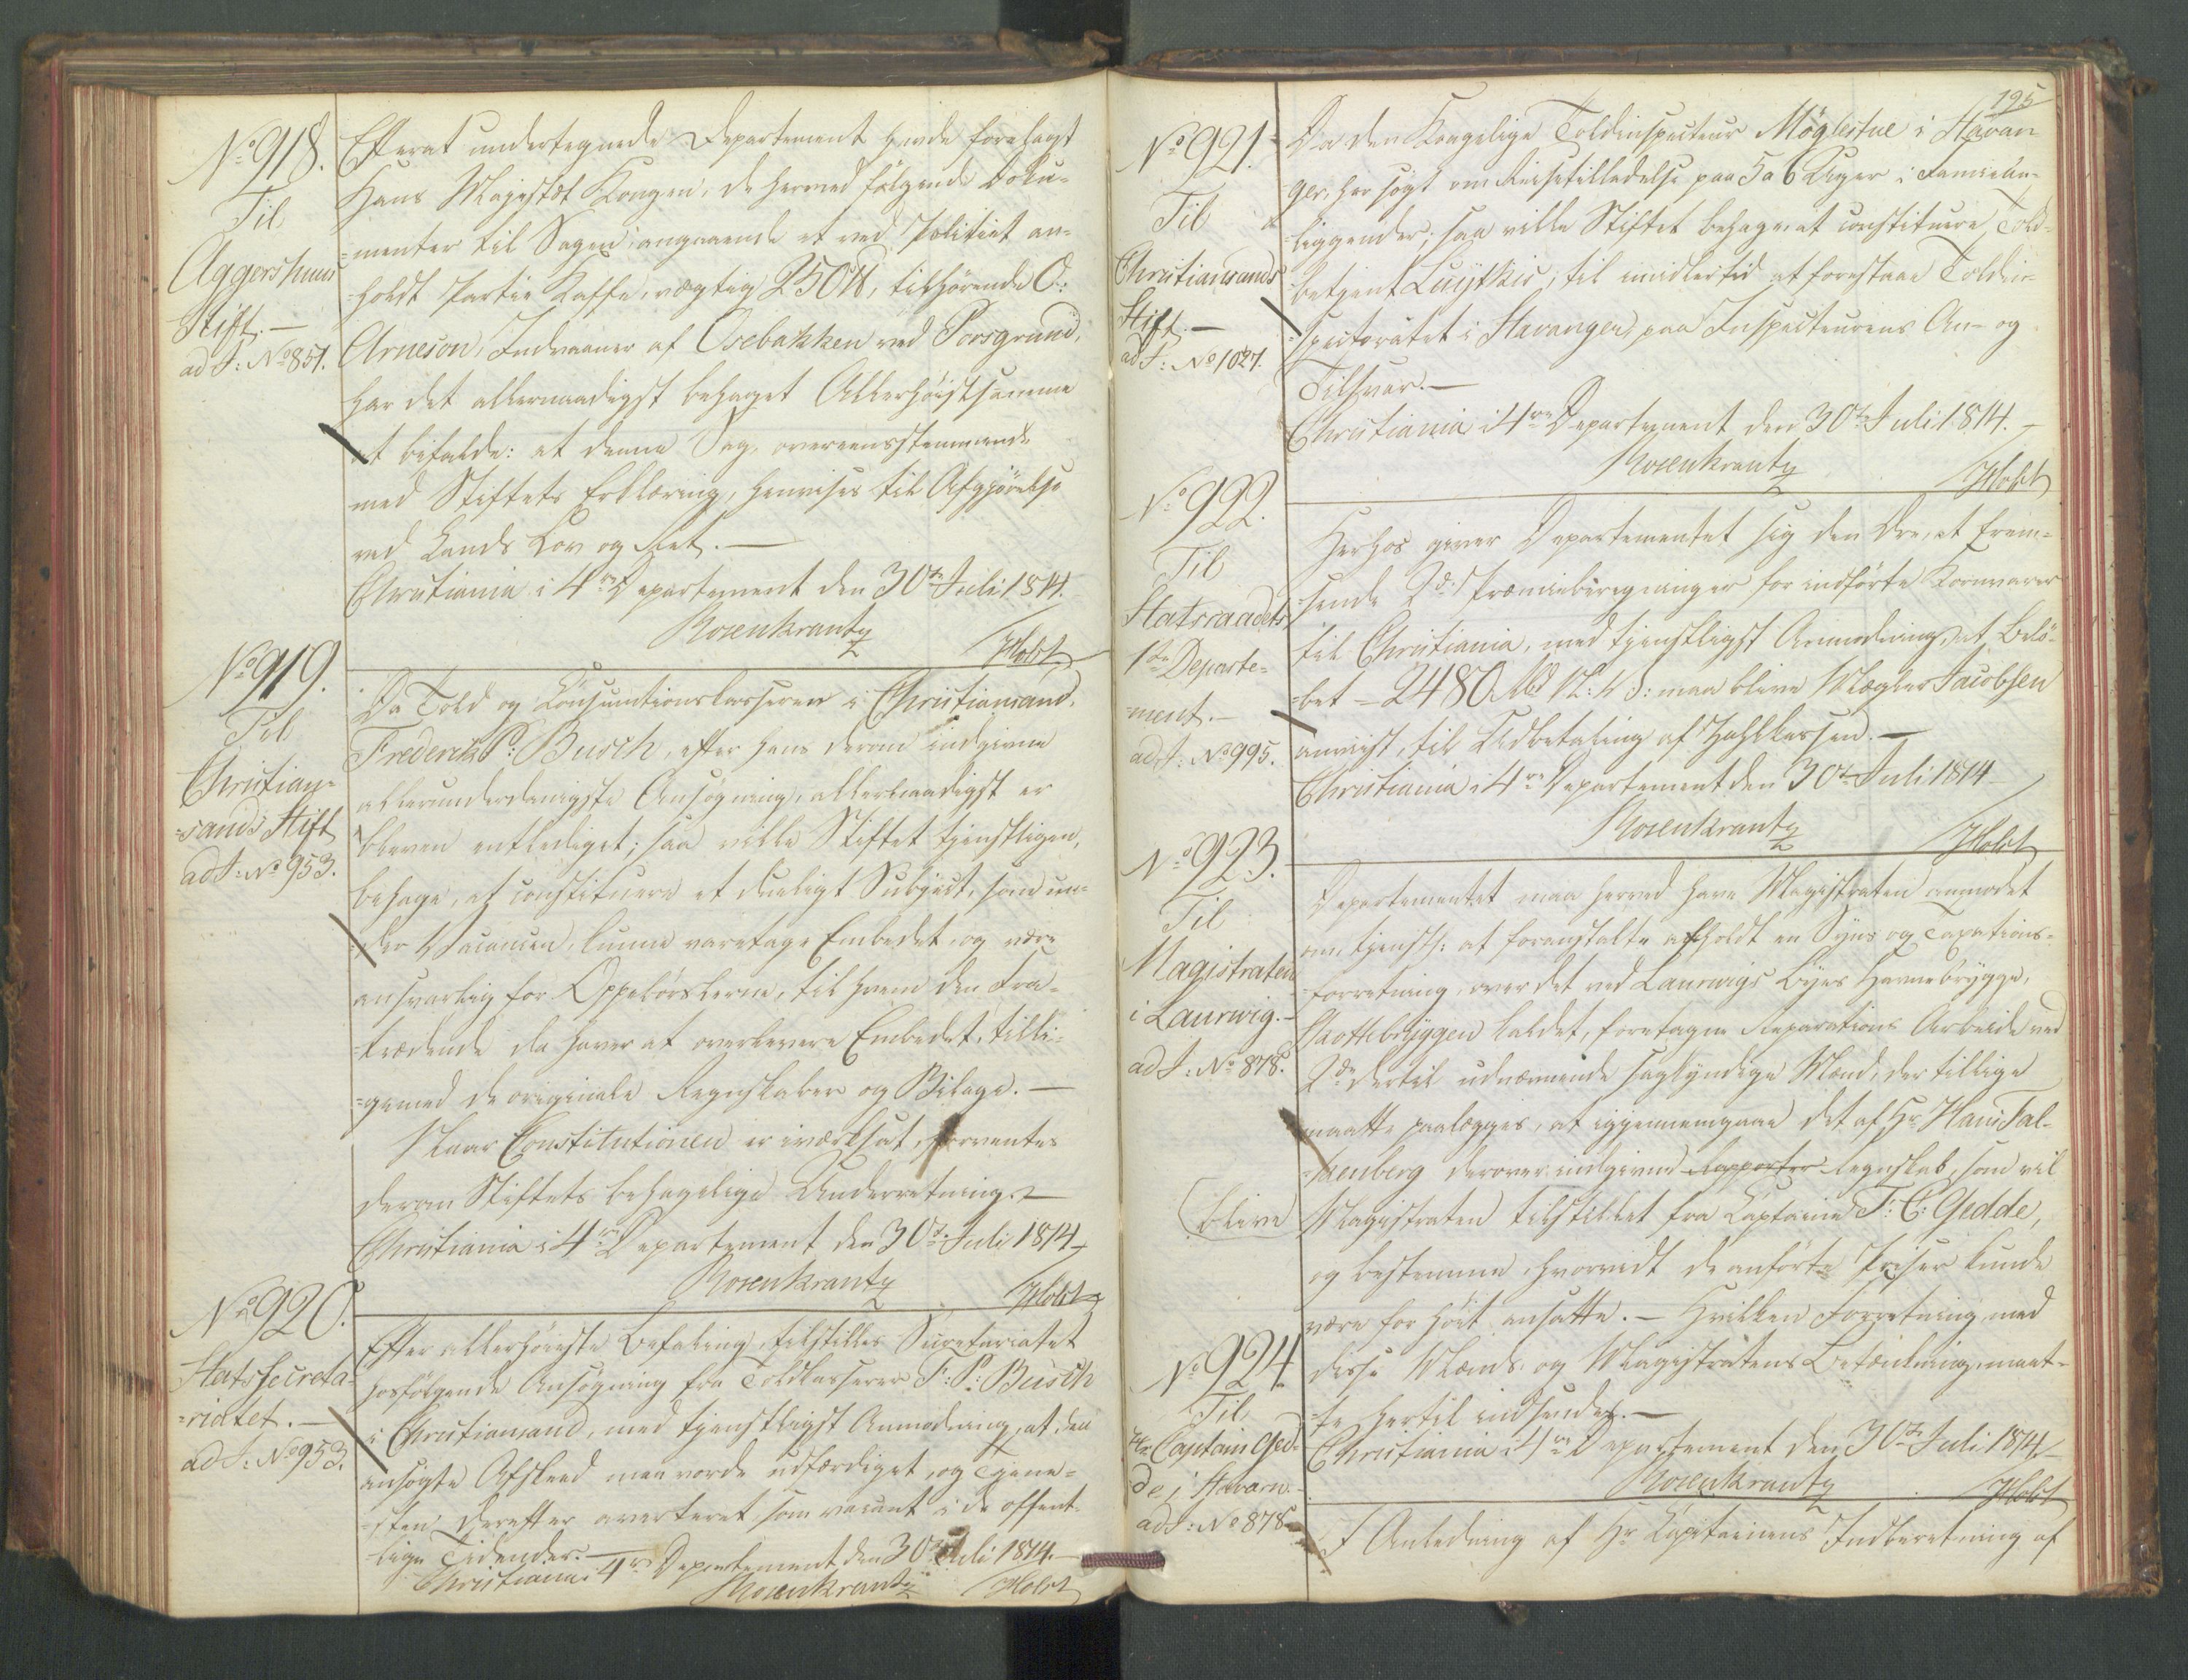 No 918.
Til
Aggershuus
Stift. —
ad J: No 851.
Efterat undertegnede Departement havde forelagt
Hans Majestæt Kongen, de hermed følgende Doku-
=menter til Sagen angaaende et ved Politiet an-
=holdt Partie Kaffe, vægtig 250 ℔, tilhørende O:
Arneson, Indvaaner af Osebakken ved Porsgrund,
har det allernaadigst behaget Allerhøistsamme
at bifalde: at denne Sag, overeensstemmende
med Stiftets Erklæring, henvises til Afgjørelse
ved Lands Lov og Ret. —
Christiania i 4re Departement den 30te Juli 1814.
Rosenkrantz
Holst
No 919.
Til
Christian-
=sands Stift
ad J: No 953.
Da Told og Consumtionskasserer i Christiansand,
Frederik P: Busch, efter hans derom indgivne
allerunderdanigste Ansøgning, allernaadigst er
bleven entlediget; saa ville Stiftet tjenstligen,
behage, at constituere et dueligt Subject, som un-
=der Vacancen, kunne varetage Embedet, og være
ansvarlig for Oppebørslerne, til hvem den Fra-
=trædende da haver at overlevere Embedet, tilli-
=gemed de originale Regnskaber og Bilage. —
Naar Constitutionen er iværksat, forventes
derom Stiftets behagelige Underretning. —
Christiania i 4re Departement den 30te Juli 1814.
Rosenkrantz
Holst
No 920.
Statssecreta-
=riatet. —
ad J: No 953.
Efter allerhøieste Befaling, tilstilles Secretariatet
hosfølgende Ansøgning fra Toldkasserer F: P: Busch
i Christiansand, med tjenstligst Anmodning, at den
ansøgte Afskeed maa vorde udfærdiget, og Tjene-
=sten derefter averteret som vacant i de offent-
=lige Tidender. —
Christiania i 4re Departement den 30te Juli 1814. —
Rosenkrantz
Holst
195
No 921.
Til
Christiansands
Stift. —
ad J: No 1027.
Da den Kongelige Toldinspecteur Møglestue i Stavan-
ger, har søgt om Reisetilladelse paa 5 a 6 Uger i Familiean-
=liggender; saa ville Stiftet behage, at constituere Told-
betjent Luytkis, til imidlertid at forestaae Toldin-
=spectoratet i Stavanger, paa Inspecteurens An- og
Tilsvar. —
Christiania i 4re Departement den 30te Juli 1814. —
Rosenkrantz
Holst
No 922.
Til
Statsraadets
1ste Departe-
=ment. —
ad J: No 995.
Herhos giver Departementet sig den Ære, at frem-
=sende 2de Præmieberegninger for indførte Kornvarer
til Christiania, med tjenstligst Anmodning, at Belø-
=bet — 2480 Rbd maa blive Mægler Jacobsen
anviist, til Udbetaling af Zahlkassen. —
Christiania i 4re Departement den 30te Juli 1814
Rosenkrantz
Holst
No 923.
Til
Magistraten
i Laurwig. —
ad J: No 878.
Departementet maa herved have Magistraten anmodet
om, tjenstl: at foranstalte afholdt en Syns og Taxations-
forretning, over det ved Laurwigs Byes Havnebrygge,
Skottebryggen kaldet, foretagne Reparations Arbeide ved
2de dertil udnævnende sagkyndige Mænd, der tillige
maatte paalægges, at igjennemgaae det af Hr Hans Fal-
=kenberg derover indgivne Rapporter Regnskab, som vil
(blive
Magistraten tilstillet fra Captaine F: C: Gedde,
og bestemme, hvorvidt de anførte Priser kunde
være for høit ansatte. — Hvilken Forretning med
disse Mænds og Magistratens Betænkning, maat-
=te hertil indsendes. —
Christiania i 4re Departement den 30te Juli 1814 —
Rosenkrantz
Holst
No 924.
Til
Hr Captain Ged-
de, i Stavarn. —
ad J: No 878
I Anledning af Hr Capitainens Indberetning af